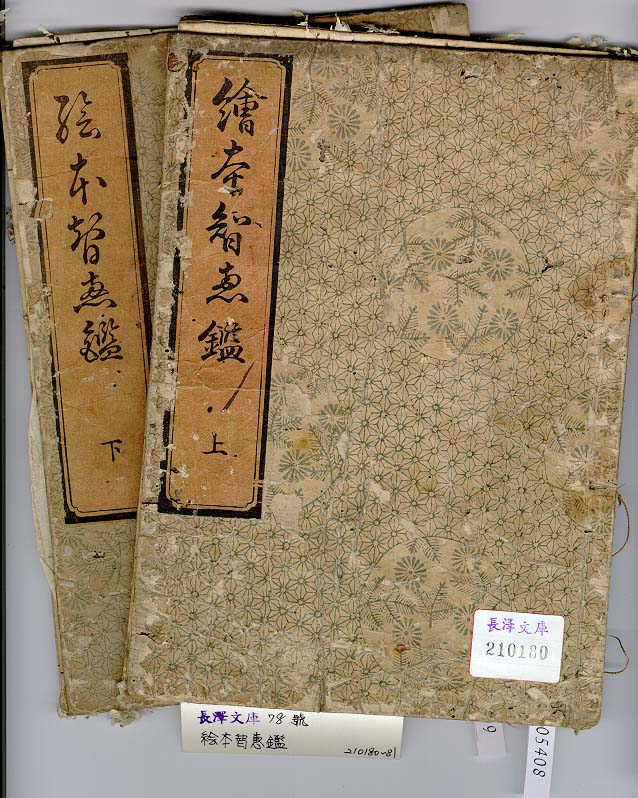 絵本智恵鑑
下
繪本智恵鑑
上
長澤文庫
210180
長澤文庫 78 號
絵本智恵鑑
210180~81
9
05408